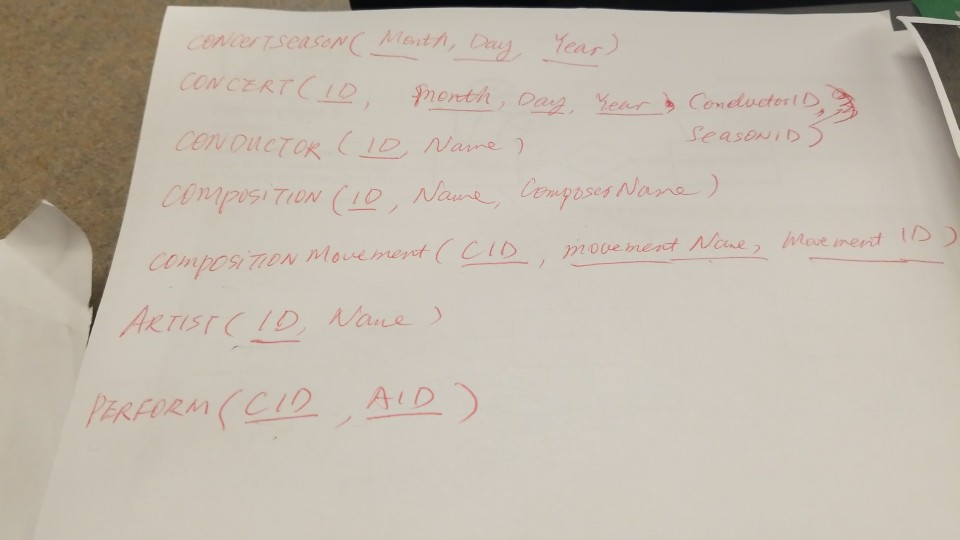 CONCERTSEASON( Month, Day, Year)
CONCERT( ID, month, Day, Year, ConductorID,
SEASONID)
CONDUCTOR ( ID, Name )
COMPOSITION ( ID, Name, ComposerName )
COMPOSITION Movement ( CID, movement Name, Movement ID )
ARTIST( ID, Name )
PERFORM ( CID, AID )